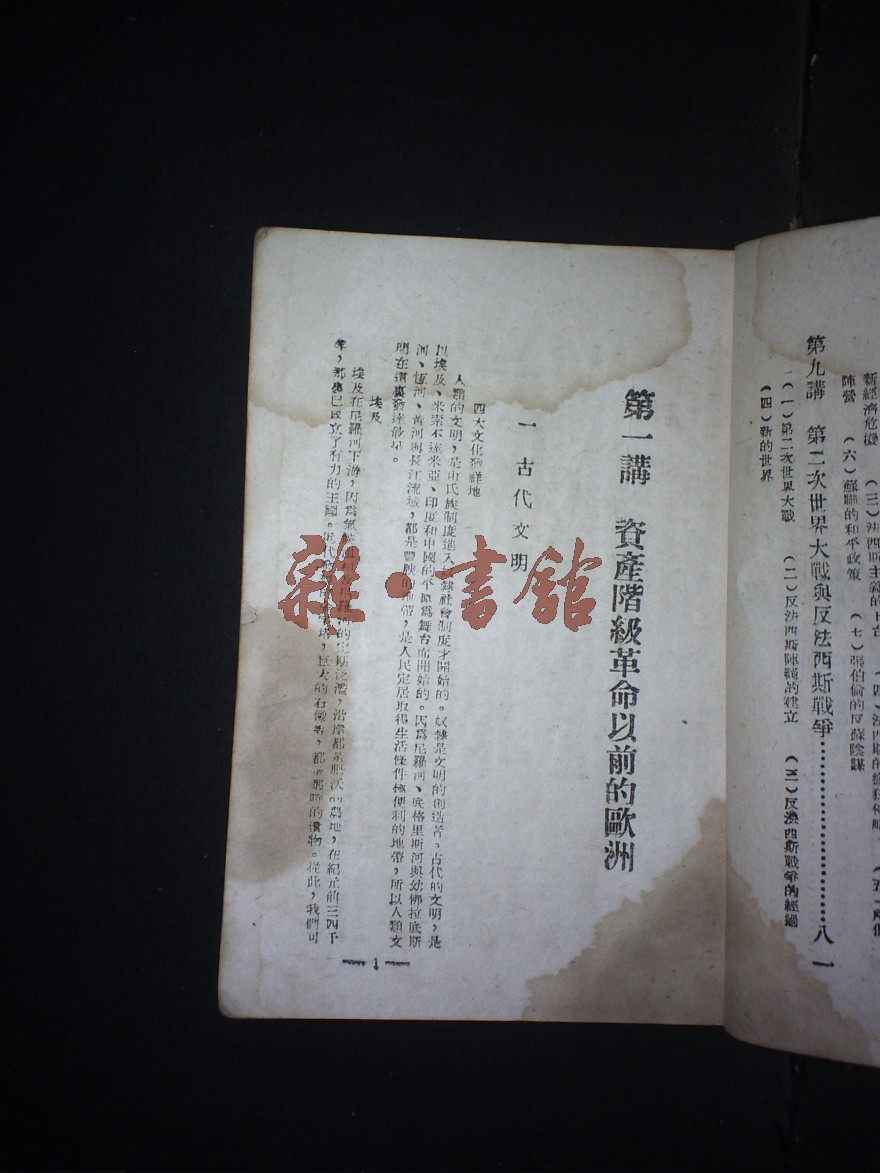 新經濟危機
陣營 （六）蘇聯的和平政策 （七）張伯倫的反蘇陰謀
第九講 第二次世界大戰與反法西斯戰爭……………………八一
（一）第二次世界大戰 （二）反法西斯陣線的建立 （三）反法西斯戰爭的經過
（四）新的世界
第一講 資產階級革命以前的歐洲
一 古代文明
四大文化發祥地
人類的文明，是由氏族制度進入奴隸社會制度才開始的。奴隸是文明的創造者。古代的文明，是
以埃及、米索不達米亞、印度和中國的平原爲舞台而開始的。因爲尼羅河、底格里斯河與幼佛拉底斯
河、恆河、黃河與長江流域，都是豐腴的地帶，是人民定居取得生活條件極便利的地帶，所以人類文
明在這裏發達最早。
埃及
埃及在尼羅河下游，因爲氣 尼羅河的定期泛濫，沿岸都是肥沃的農地，在紀元前三四千
年，那兒已成立了有力的王國。 塔，巨大的石像等，都是那時的遺物。從此，我們可
1
雜·書館